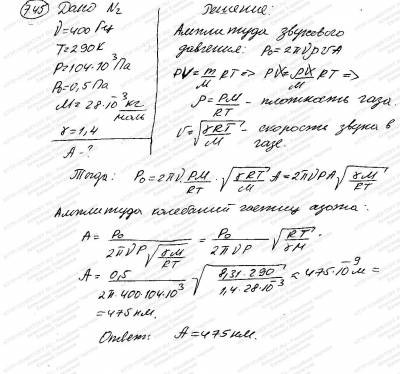 745 Дано N₂ Решение:
ν=400 Гц
T=290К
P=104·10³ Па
P₀=0,5 Па
M=28·10⁻³ кг/моль
γ=1,4
A-?
Амплитуда звукового
давления: P₀=2πνρvA
PV=m/M RT => PV=ρV/M RT =>
ρ=PM/RT - плотность газа.
v=√(γRT/M) - скорость звука в
газе.
Тогда: P₀=2πν PM/RT · √(γRT/M) A=2πνPA√(γM/RT)
Амплитуда колебаний частиц азота:
A= P₀/(2πνP√(γM/RT)) = P₀/(2πνP) √(RT/γM) .
A= 0,5/(2π·400·104·10³) √(8,31·290/(1,4·28·10⁻³)) ≈ 475·10⁻⁹ м =
=475 нм.
Ответ: A=475 нм.